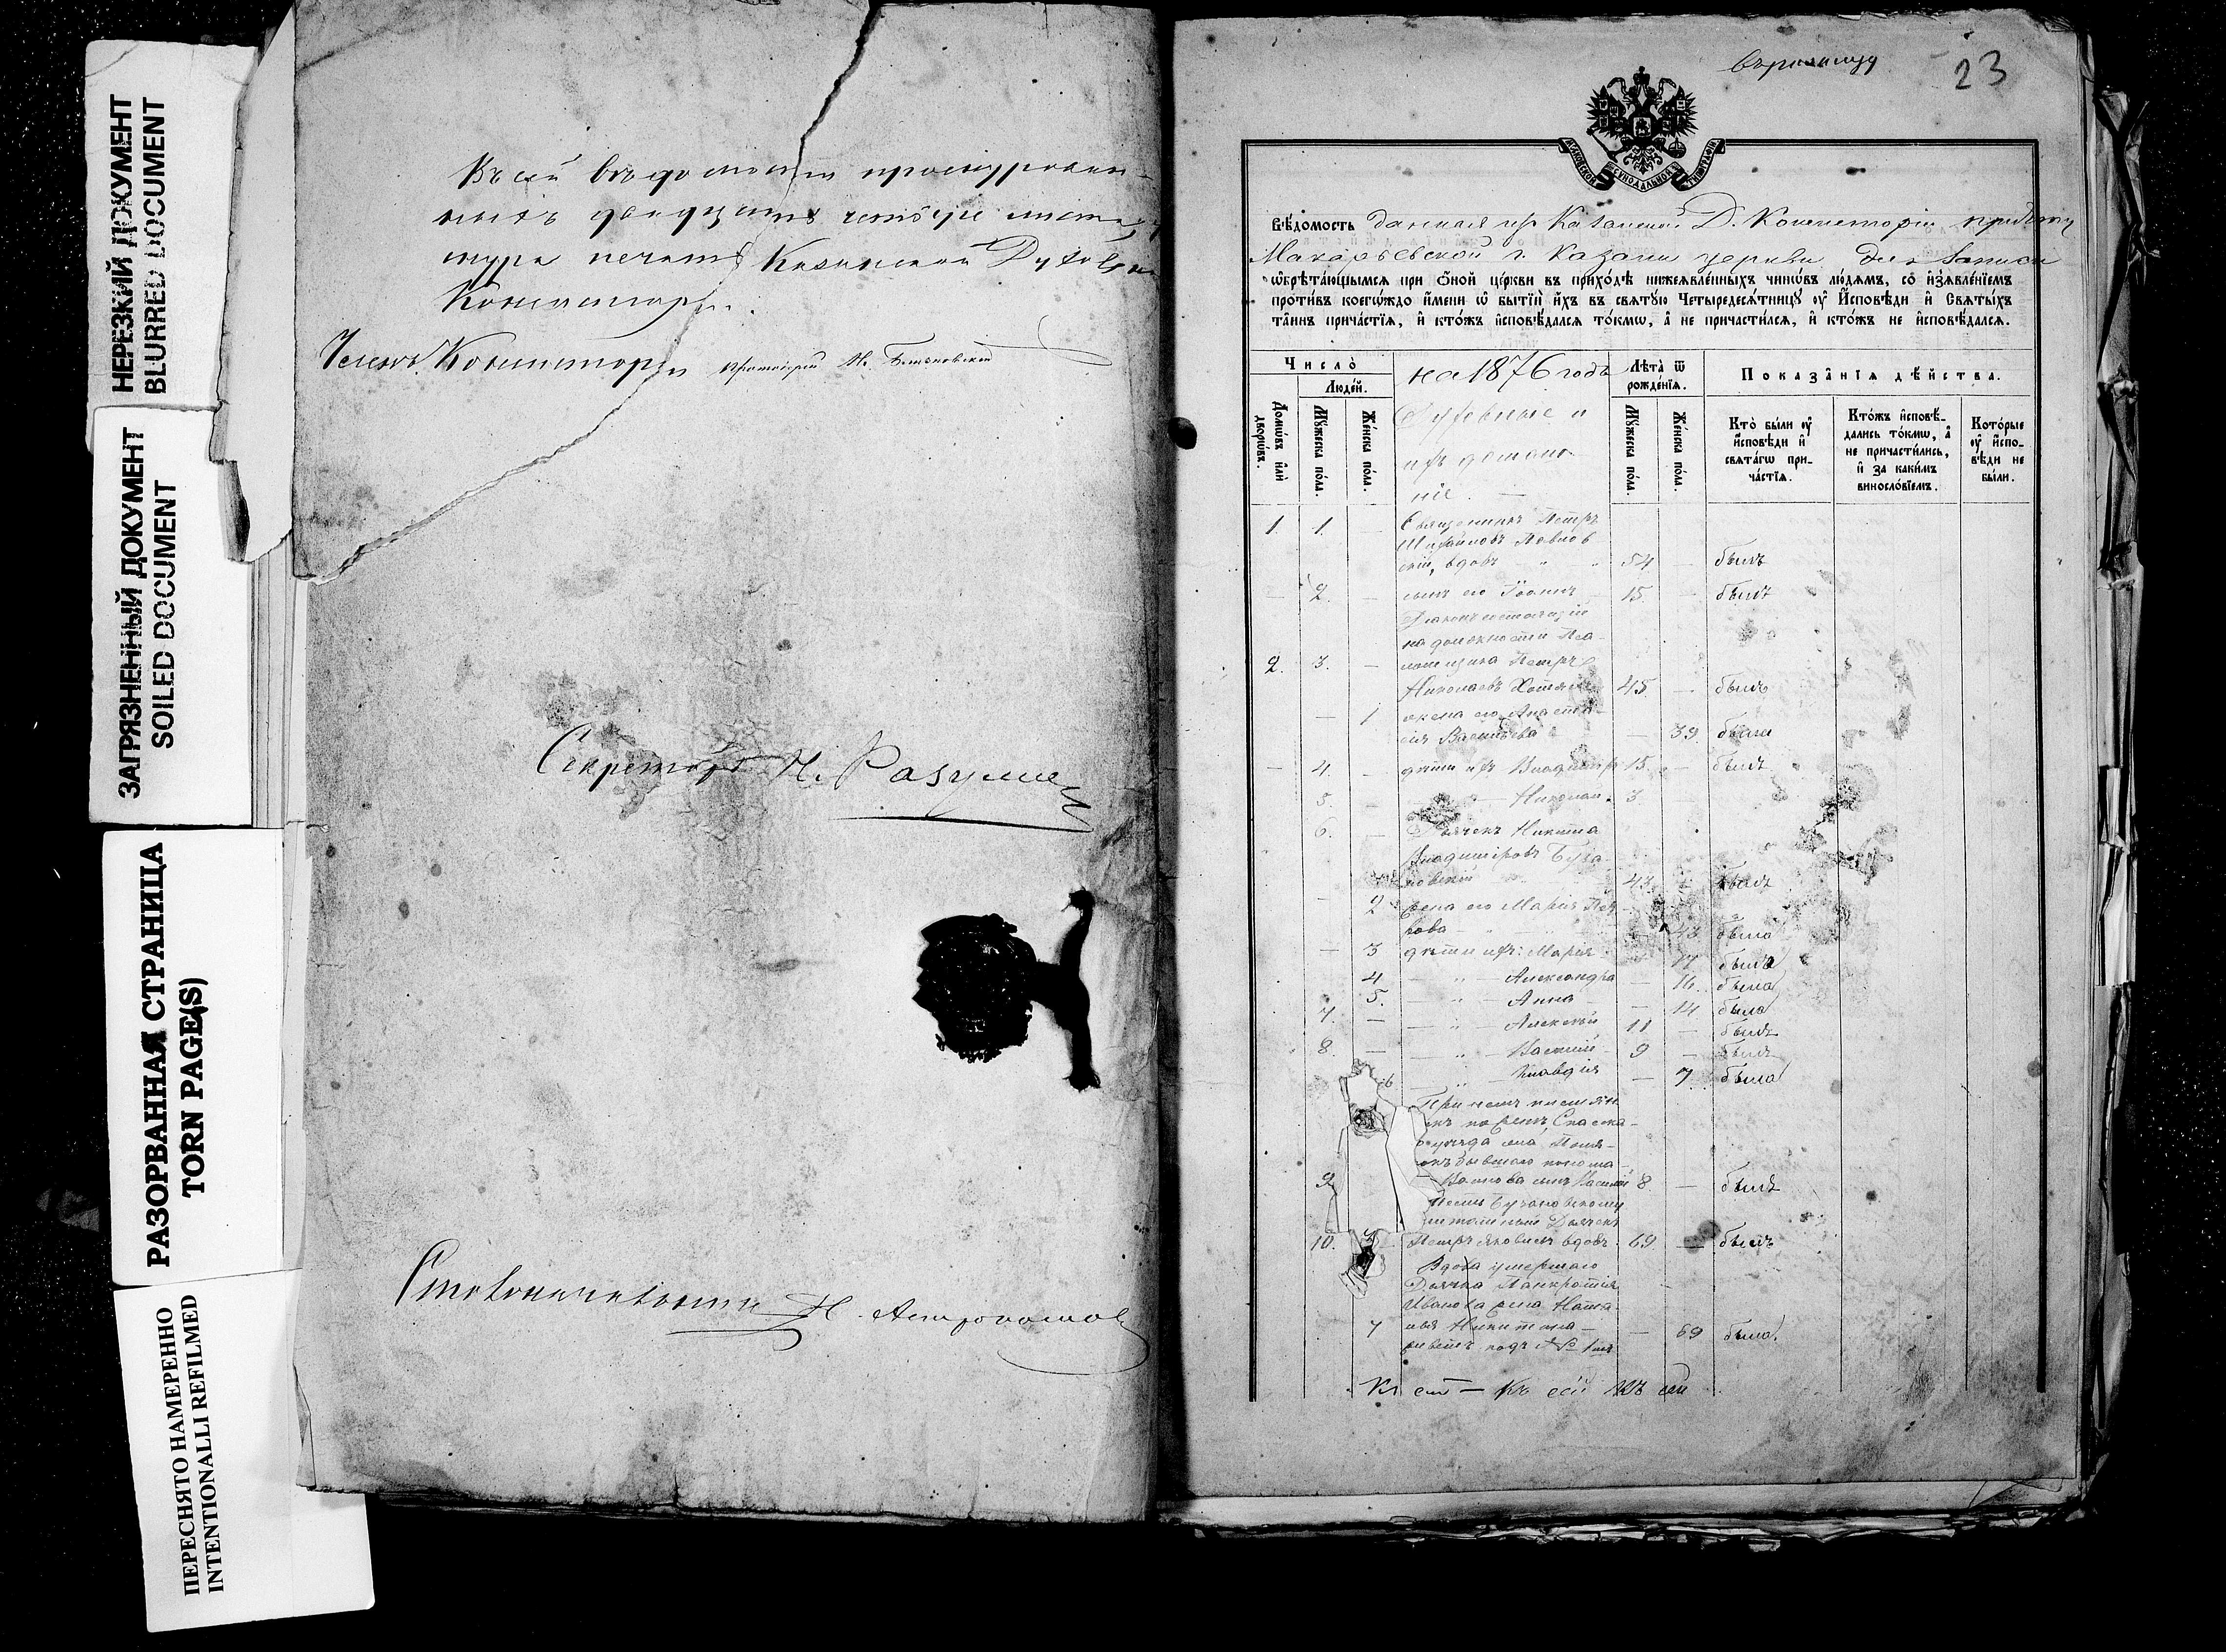 НЕРЕЗКИЙ ДОКУМЕНТ
BLURRED DOCUMENT
ЗАГРЯЗНЕННЫЙ ДОКУМЕНТ
SOILED DOCUMENT
РАЗОРВАННАЯ СТРАНИЦА
TORN PAGE(S)
ПЕРЕСНЯТО НАМЕРЕННО
INTENTIONALLI REFILMED
Къ сей вѣдомости прошнурован-
ныхъ двадцать четыре листа,
шура печать Казанской Духовной
Консисторіи.
Членъ Консисторіи протоіерей
Секретарь Н. Разумов
Столоначальникъ Н.
23
МОСКОВСКОЙ СУНОДАЛЬНОЙ ТИПОГРАФІИ
Вѣдомость данная изъ Казанской Д. Консисторіи причту
Макарьевской г. Казани церкви для записи
ѡбрѣтающымсѧ при ѻной церкви въ приходѣ нижеѧвленныхъ чинѡвъ людѧмъ, со изъѧвленіемъ
противъ коегѡждо имени ѡ бытіи ихъ въ свѧтую Четыредесѧтницу ѹ Исповѣди и Свѧтыхъ
таинъ причастіѧ, и ктожъ исповѣдалсѧ токмѡ, а не причастилсѧ, и ктожъ не исповѣдалсѧ.
Число
Людей.
Домѡвъ или дворѡвъ.
Мужеска пола.
Женска пола.
на 1876 годъ
Духовные и
ихъ домаш-
ніе.
Лѣта ѿ рожденіѧ.
Мужеска пола.
Женска пола.
Показаніѧ дѣйства.
Кто были ѹ исповѣди и свѧтагѡ причастіѧ.
Ктожъ исповѣдались токмѡ, а не причастились, и за какимъ винословіемъ.
Которые ѹ исповѣди не были.
1. 1. — Священникъ Петръ
Михайловъ Павлов
скій, вдовъ 54 — былъ
— 2. — сынъ его Іоаннъ 15. — былъ
Діаконъ состоящій
на должности Пса-
2. 3. — ломщика Петръ
Николаевъ 45 — былъ
— 1 жена его Анаста-
сія Васильева — 39. была
— 4. — дѣти ихъ Владимиръ 15. — былъ
5. — Николай. 3.
6. — Дьячекъ Никита
Владиміровъ Буза
новскій 43 былъ
— 2 жена его Марія Пет
рова 43 была
— 3 дѣти ихъ: Марія 17 была
4 — Александра — 16. была
5. — Анна — 14 была
7. — Алексѣй 11 — былъ
8. — Василій 9 — былъ
6 — Клавдія — 7. была
9 сынъ Василій 8 — былъ
10. Петръ Яковлевъ вдовъ. 69. — былъ
Вдова умершаго
Дьячка Панкратія
Иванова жена Ната-
7 лья Никитина — 69 была.